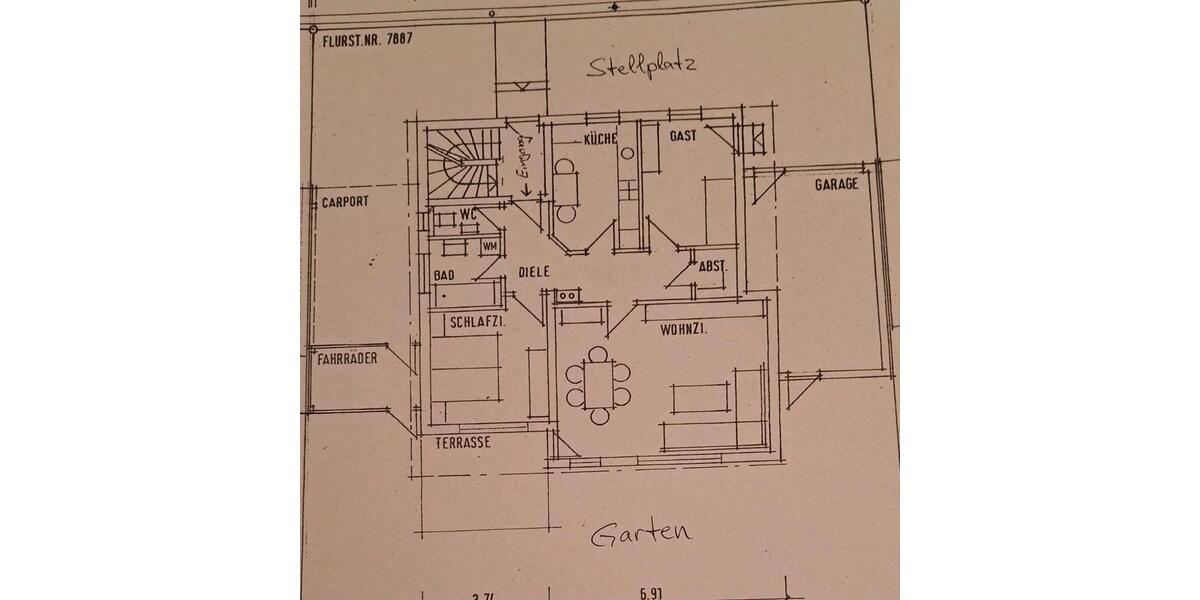 FLURST.NR. 7887
Stellplatz
KÜCHE
GAST
Eingang
GARAGE
CARPORT
WC
WM
BAD
DIELE
ABST.
SCHLAFZI.
WOHNZI.
FAHRRÄDER
TERRASSE
Garten
6.91